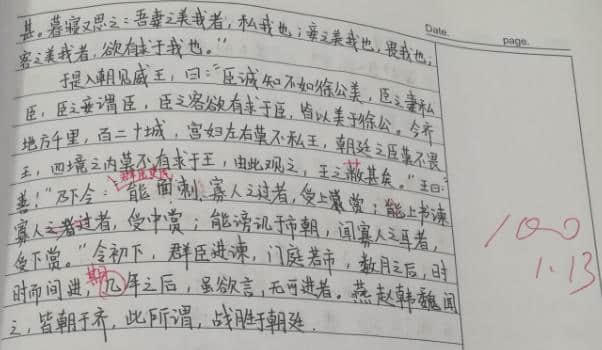 甚。暮寝又思之：吾妻之美我者，私我也；妾之美我也，畏我也，
客之美我者，欲有求于我也。”
Date.
page.
于是入朝见威王，曰：“臣诚知不如徐公美，臣之妻私
臣，臣之妾谓臣，臣之客欲有求于臣，皆以美于徐公。今齐
地方千里，百二十城，宫妇左右莫不私王，朝廷之臣莫不畏
王，四境之内莫不有求于王，由此观之，王之蔽甚矣。”王曰：“
群臣吏民
善！”乃下令：“能面刺寡人之过者，受上赏；能上书谏
寡人之过者，受中赏；能谤讥于市朝，闻寡人之耳者，
受下赏。”令初下，群臣进谏，门庭若市，数月之后，时
期
时而间进，几年之后，虽欲言，无可进者。燕赵韩魏闻
之，皆朝于齐，此所谓，战胜于朝廷.
100
1.13